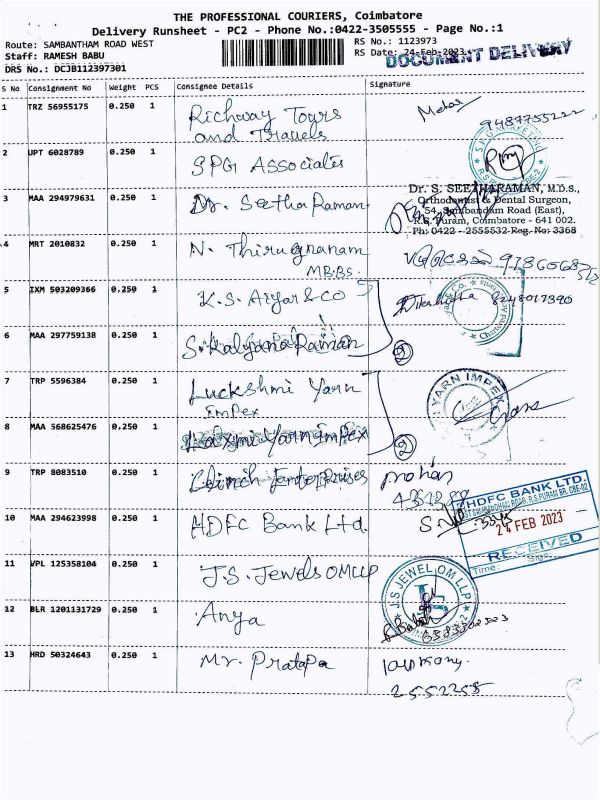 THE PROFESSIONAL COURIERS, Coimbatore
Delivery Runsheet - PC2 - Phone No.:0422-3505555 - Page No.:1
Route: SAMBANTHAM ROAD WEST
RS No.: 1123973
Staff: RAMESH BABU
RS Date: 24-Feb-2023
DOCUMENT DELIVERY
DRS No.: DCJB112397301
S No Consignment No Weight PCS Consignee Details Signature
1 TRZ 56955175 0.250 1 Richway Tours
and Travels
9487755222
2 UPT 6028789 0.250 1 SPG Associates
3 MAA 294979631 0.250 1 Dr. Seetha Raman
Dr. S. SEETHARAMAN, M.D.S.,
Orthodontist & Dental Surgeon,
54, Sambandam Road (East),
R.S. Puram, Coimbatore - 641 002.
Ph: 0422 - 2555532 Reg. No: 3368
4 MRT 2010832 0.250 1 N. Thirugnanam
MBBS.
5 IXM 503209366 0.250 1 K.S. Aiyar & Co
8248017390
6 MAA 297759138 0.250 1 S. Kalyana Raman
2
7 TRP 5596384 0.250 1 Luckshmi Yarn
Impex
YARN IMPEX
8 MAA 568625476 0.250 1 Laxmi Yarn Impex
2
9 TRP 8083510 0.250 1 Enterprises
10 MAA 294623998 0.250 1 HDFC Bank Ltd.
HDFC BANK LTD.
24 FEB 2023
RECEIVED
Time: Sign:
11 VPL 125358104 0.250 1 J.S. Jewels OM LLP
J.S JEWEL OM LLP
12 BLR 1201131729 0.250 1 Anya
13 HRD 50324643 0.250 1 Mr. Pratapa
2552255